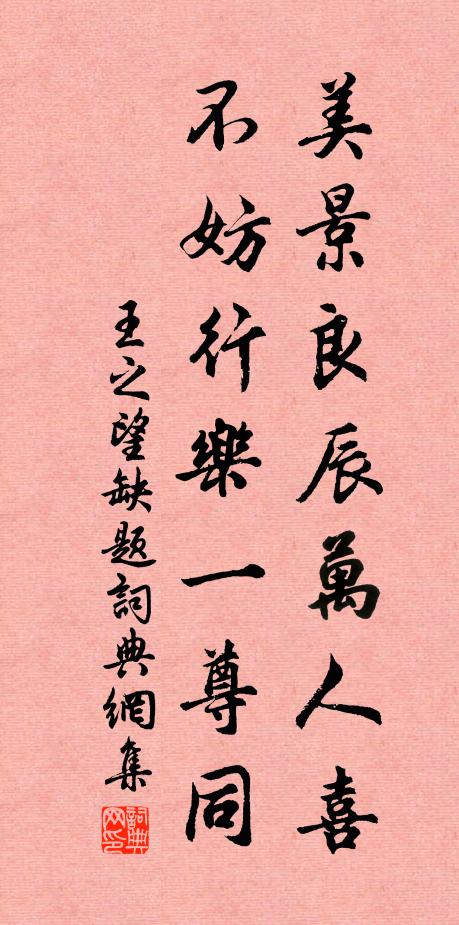 美景良辰萬人喜
不妨行樂一尊同
王之望缺題詞典網集
詞典网印